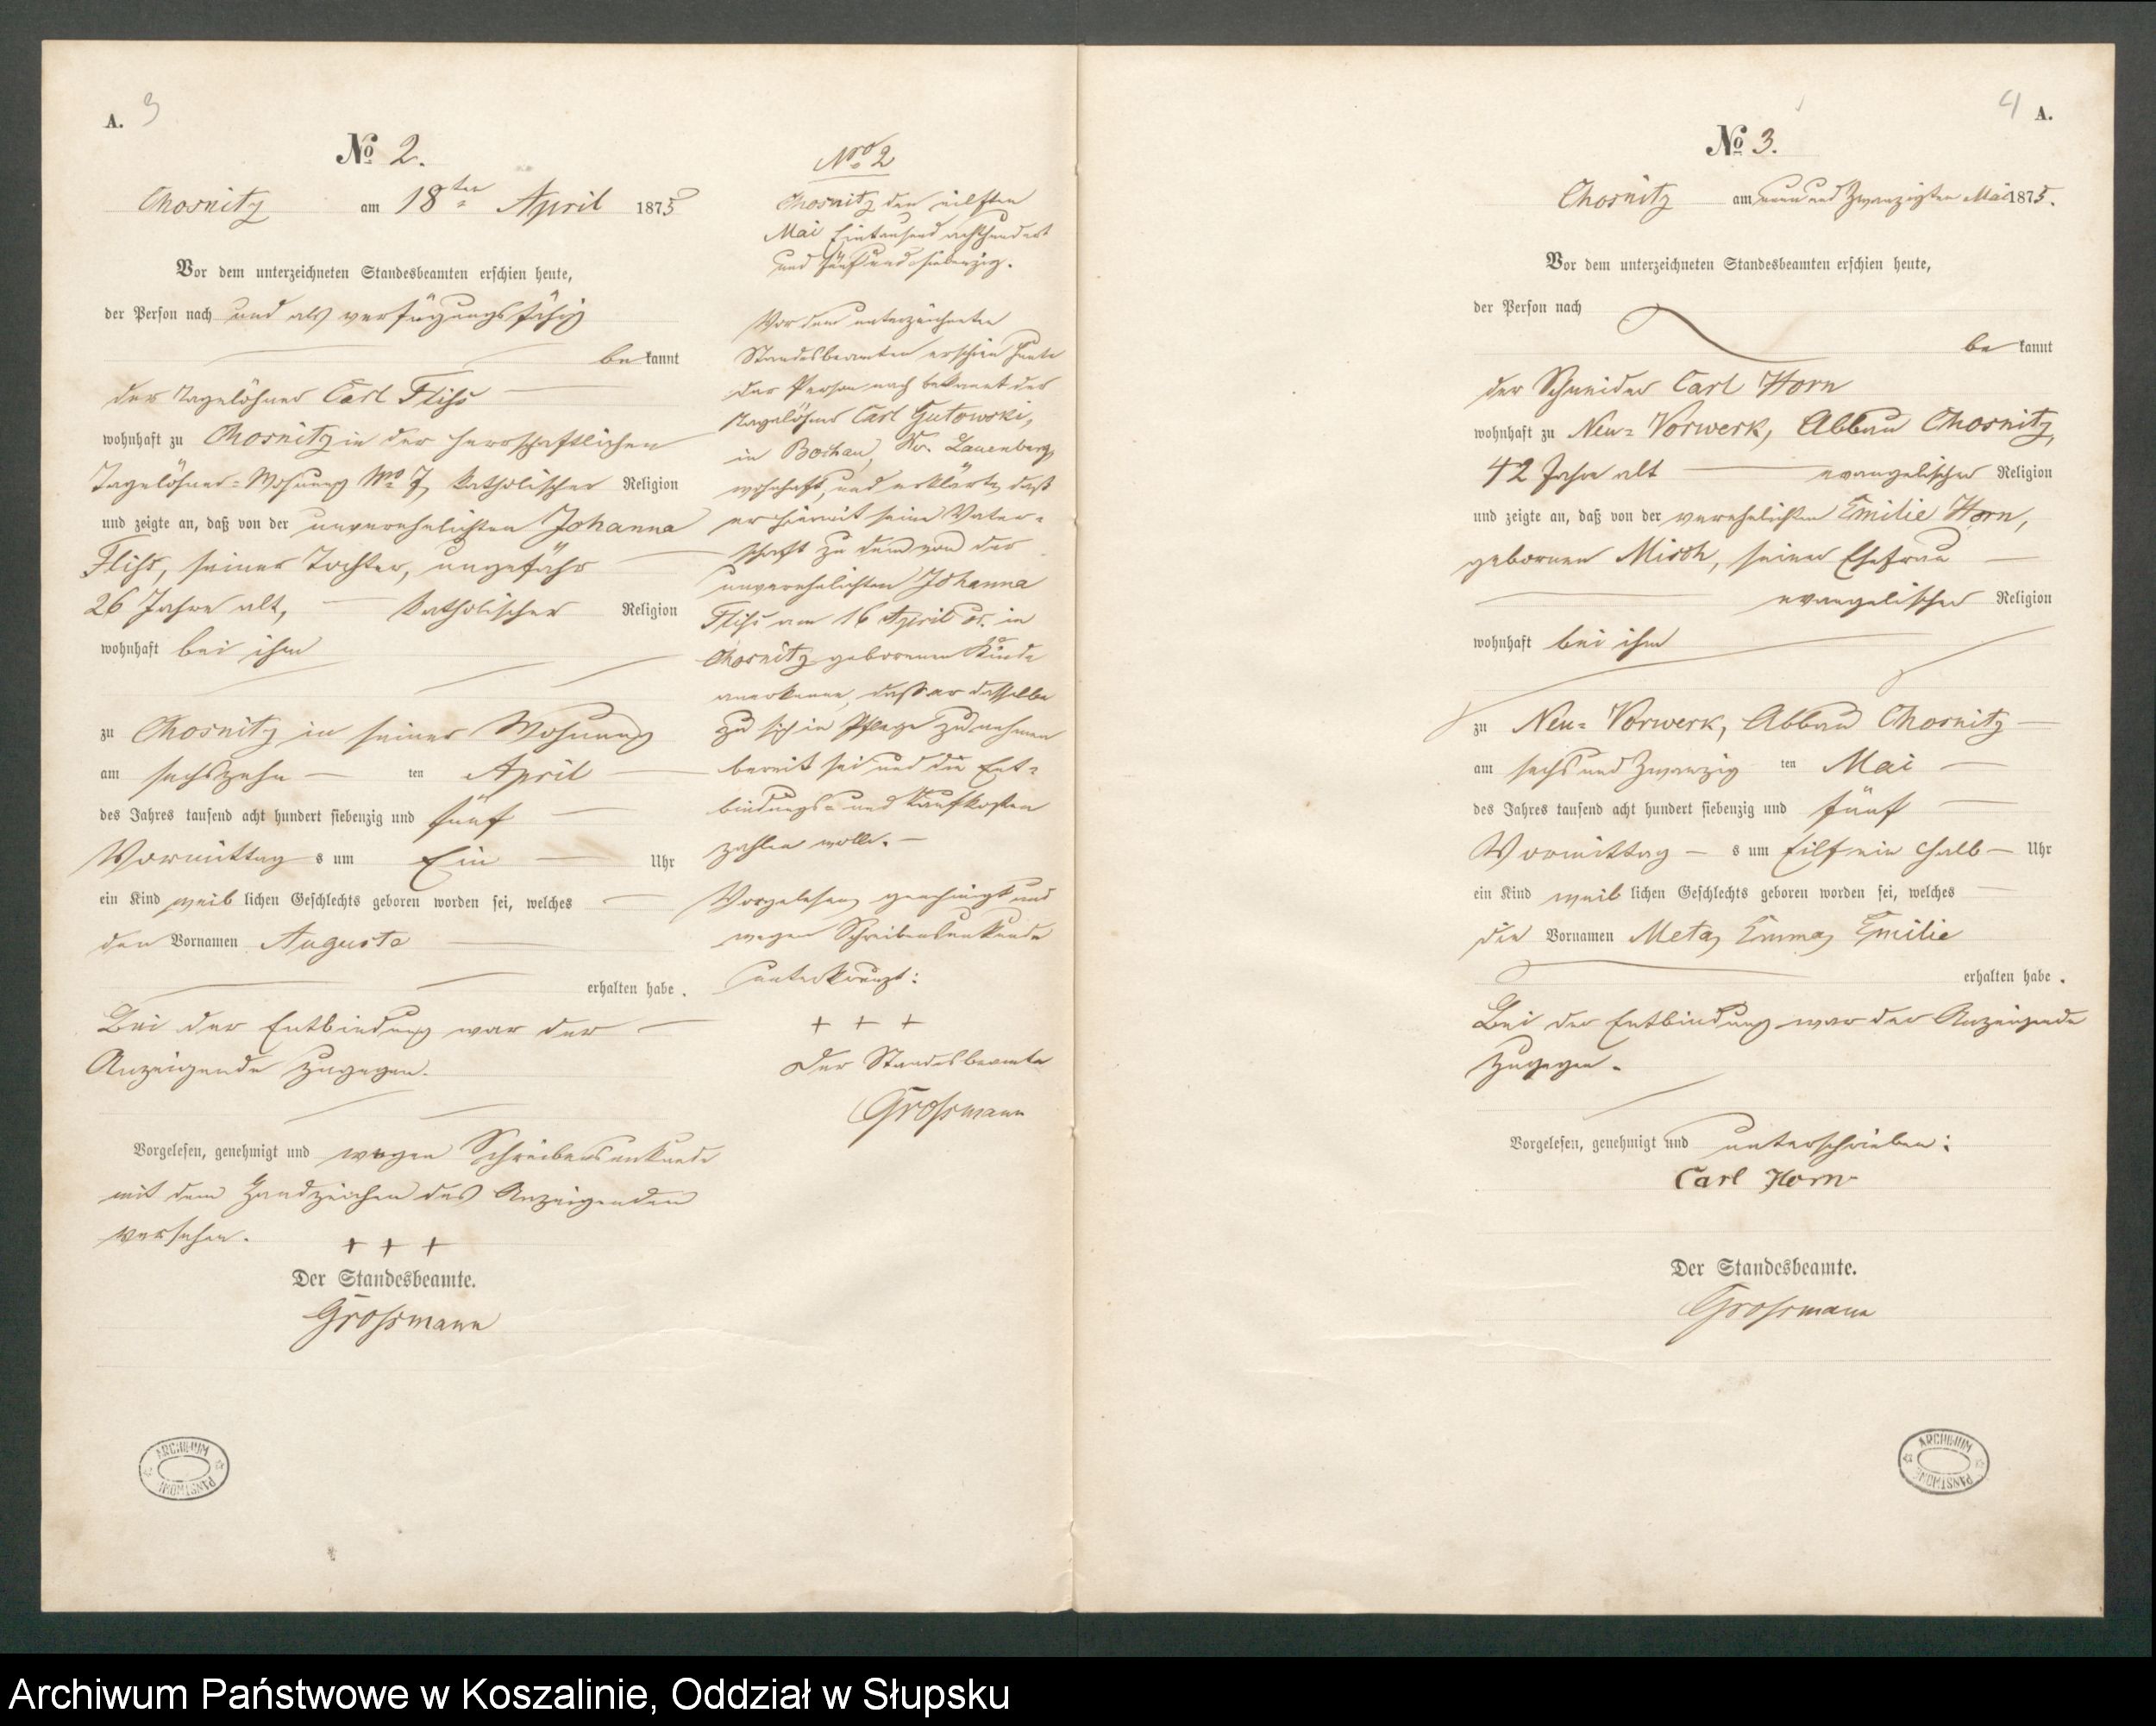 A. 3
No 2.
Chosnitz am 18ten April 1875
Vor dem unterzeichneten Standesbeamten erschien heute,
der Person nach und als verfügungsfähig
bekannt
der Tagelöhner Carl Fliss
wohnhaft zu Chosnitz in der herrschaftlichen
Tagelöhner-Wohnung No 7, katholischer Religion
und zeigte an, daß von der unverehelichten Johanna
Fliss, seiner Tochter, ungefähr
26 Jahre alt, katholischer Religion
wohnhaft bei ihm
zu Chosnitz in seiner Wohnung
am sechszehn ten April
des Jahres tausend acht hundert siebenzig und fünf
Vormittag s um Ein Uhr
ein Kind weib lichen Geschlechts geboren worden sei, welches
den Vornamen Auguste
erhalten habe.
Bei der Entbindung war der
Anzeigende zugegen.
Vorgelesen, genehmigt und wegen Schreibensunkunde
mit dem Handzeichen des Anzeigenden
versehen.
+ + +
Der Standesbeamte.
Grossmann
Nro 2
Chosnitz den eilften
Mai Eintausend achthundert
und fünf und siebenzig.
Vor dem unterzeichneten
Standesbeamten erschien heute
der Person nach bekannt der
Tagelöhner Carl Gutowski,
in Bochau, Kr. Lauenburg,
wohnhaft, und erklärte, daß
er hiermit seine Vater-
schaft zu dem von der
unverehelichten Johanna
Fliss am 16 April cr. in
Chosnitz geborenen Kinde
anerkenne, daß er dasselbe
zu sich in Pflege zu nehmen
bereit sei und die Ent-
bindungs- und Taufkosten
zahlen wolle.
Vorgelesen, genehmigt und
wegen Schreibensunkunde
unterkreuzt:
+ + +
Der Standesbeamte
Grossmann
4 A.
No 3.
Chosnitz am neun und zwanzigsten Mai 1875.
Vor dem unterzeichneten Standesbeamten erschien heute,
der Person nach
bekannt
der Schneider Carl Horn
wohnhaft zu Neu-Vorwerk, Abbau Chosnitz,
42 Jahre alt evangelischer Religion
und zeigte an, daß von der verehelichten Emilie Horn,
gebornen Misch, seiner Ehefrau
evangelischer Religion
wohnhaft bei ihm
zu Neu-Vorwerk, Abbau Chosnitz
am sechs und zwanzig ten Mai
des Jahres tausend acht hundert siebenzig und fünf
Vormittag s um Eilf ein halb Uhr
ein Kind weib lichen Geschlechts geboren worden sei, welches
die Vornamen Meta, Emma, Emilie
erhalten habe.
Bei der Entbindung war der Anzeigende
zugegen.
Vorgelesen, genehmigt und unterschrieben:
Carl Horn
Der Standesbeamte.
Grossmann
ARCHIWUM PAŃSTWOWE
ARCHIWUM PAŃSTWOWE
Archiwum Państwowe w Koszalinie, Oddział w Słupsku